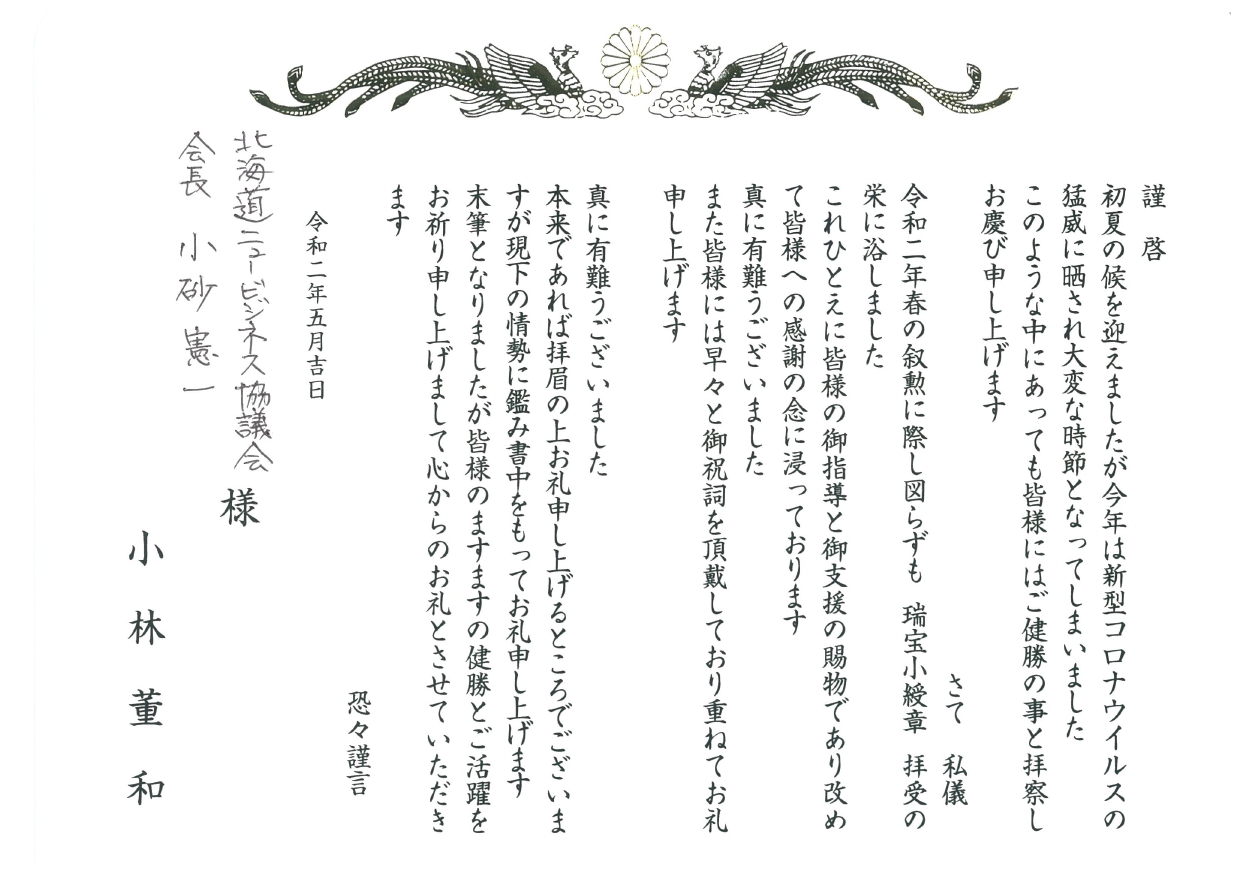 謹　啓
初夏の候を迎えましたが今年は新型コロナウイルスの
猛威に晒され大変な時節となってしまいました
このような中にあっても皆様にはご健勝の事と拝察し
お慶び申し上げます
さて　私儀
令和二年春の叙勲に際し図らずも　瑞宝小綬章　拝受の
栄に浴しました
これひとえに皆様の御指導と御支援の賜物であり改め
て皆様への感謝の念に浸っております
真に有難うございました
また皆様には早々と御祝詞を頂戴しており重ねてお礼
申し上げます
真に有難うございました
本来であれば拝眉の上お礼申し上げるところでございま
すが現下の情勢に鑑み書中をもってお礼申し上げます
末筆となりましたが皆様のますますの健勝とご活躍を
お祈り申し上げまして心からのお礼とさせていただき
ます
恐々謹言
令和二年五月吉日
北海道ニュービジネス協議会
会長　小砂憲一
様
小林董和